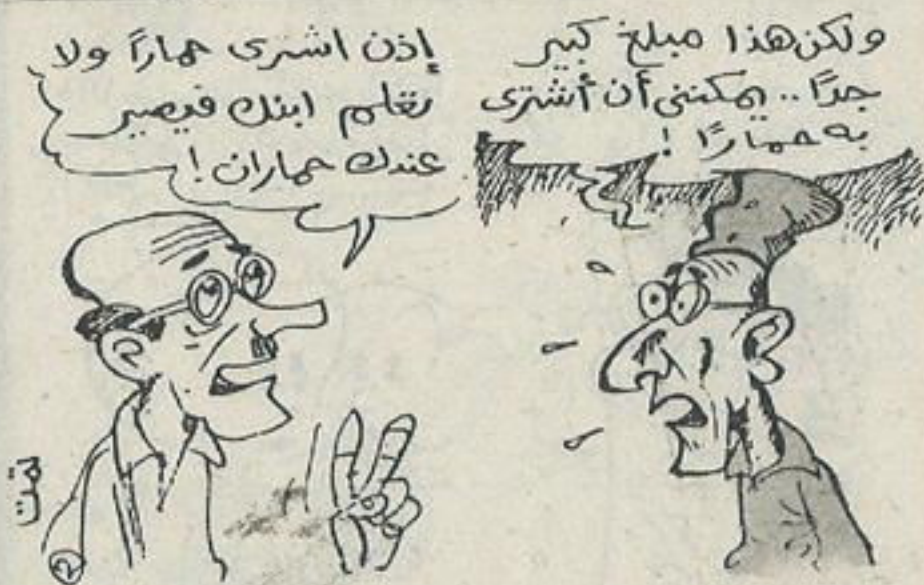 ولكن هذا مبلغ كبير
جدًا.. يمكنني أن أشترى
به حمارًا!
إذن اشترى حمارًا ولا
تعلم ابنك فيصير
عندك حماران!